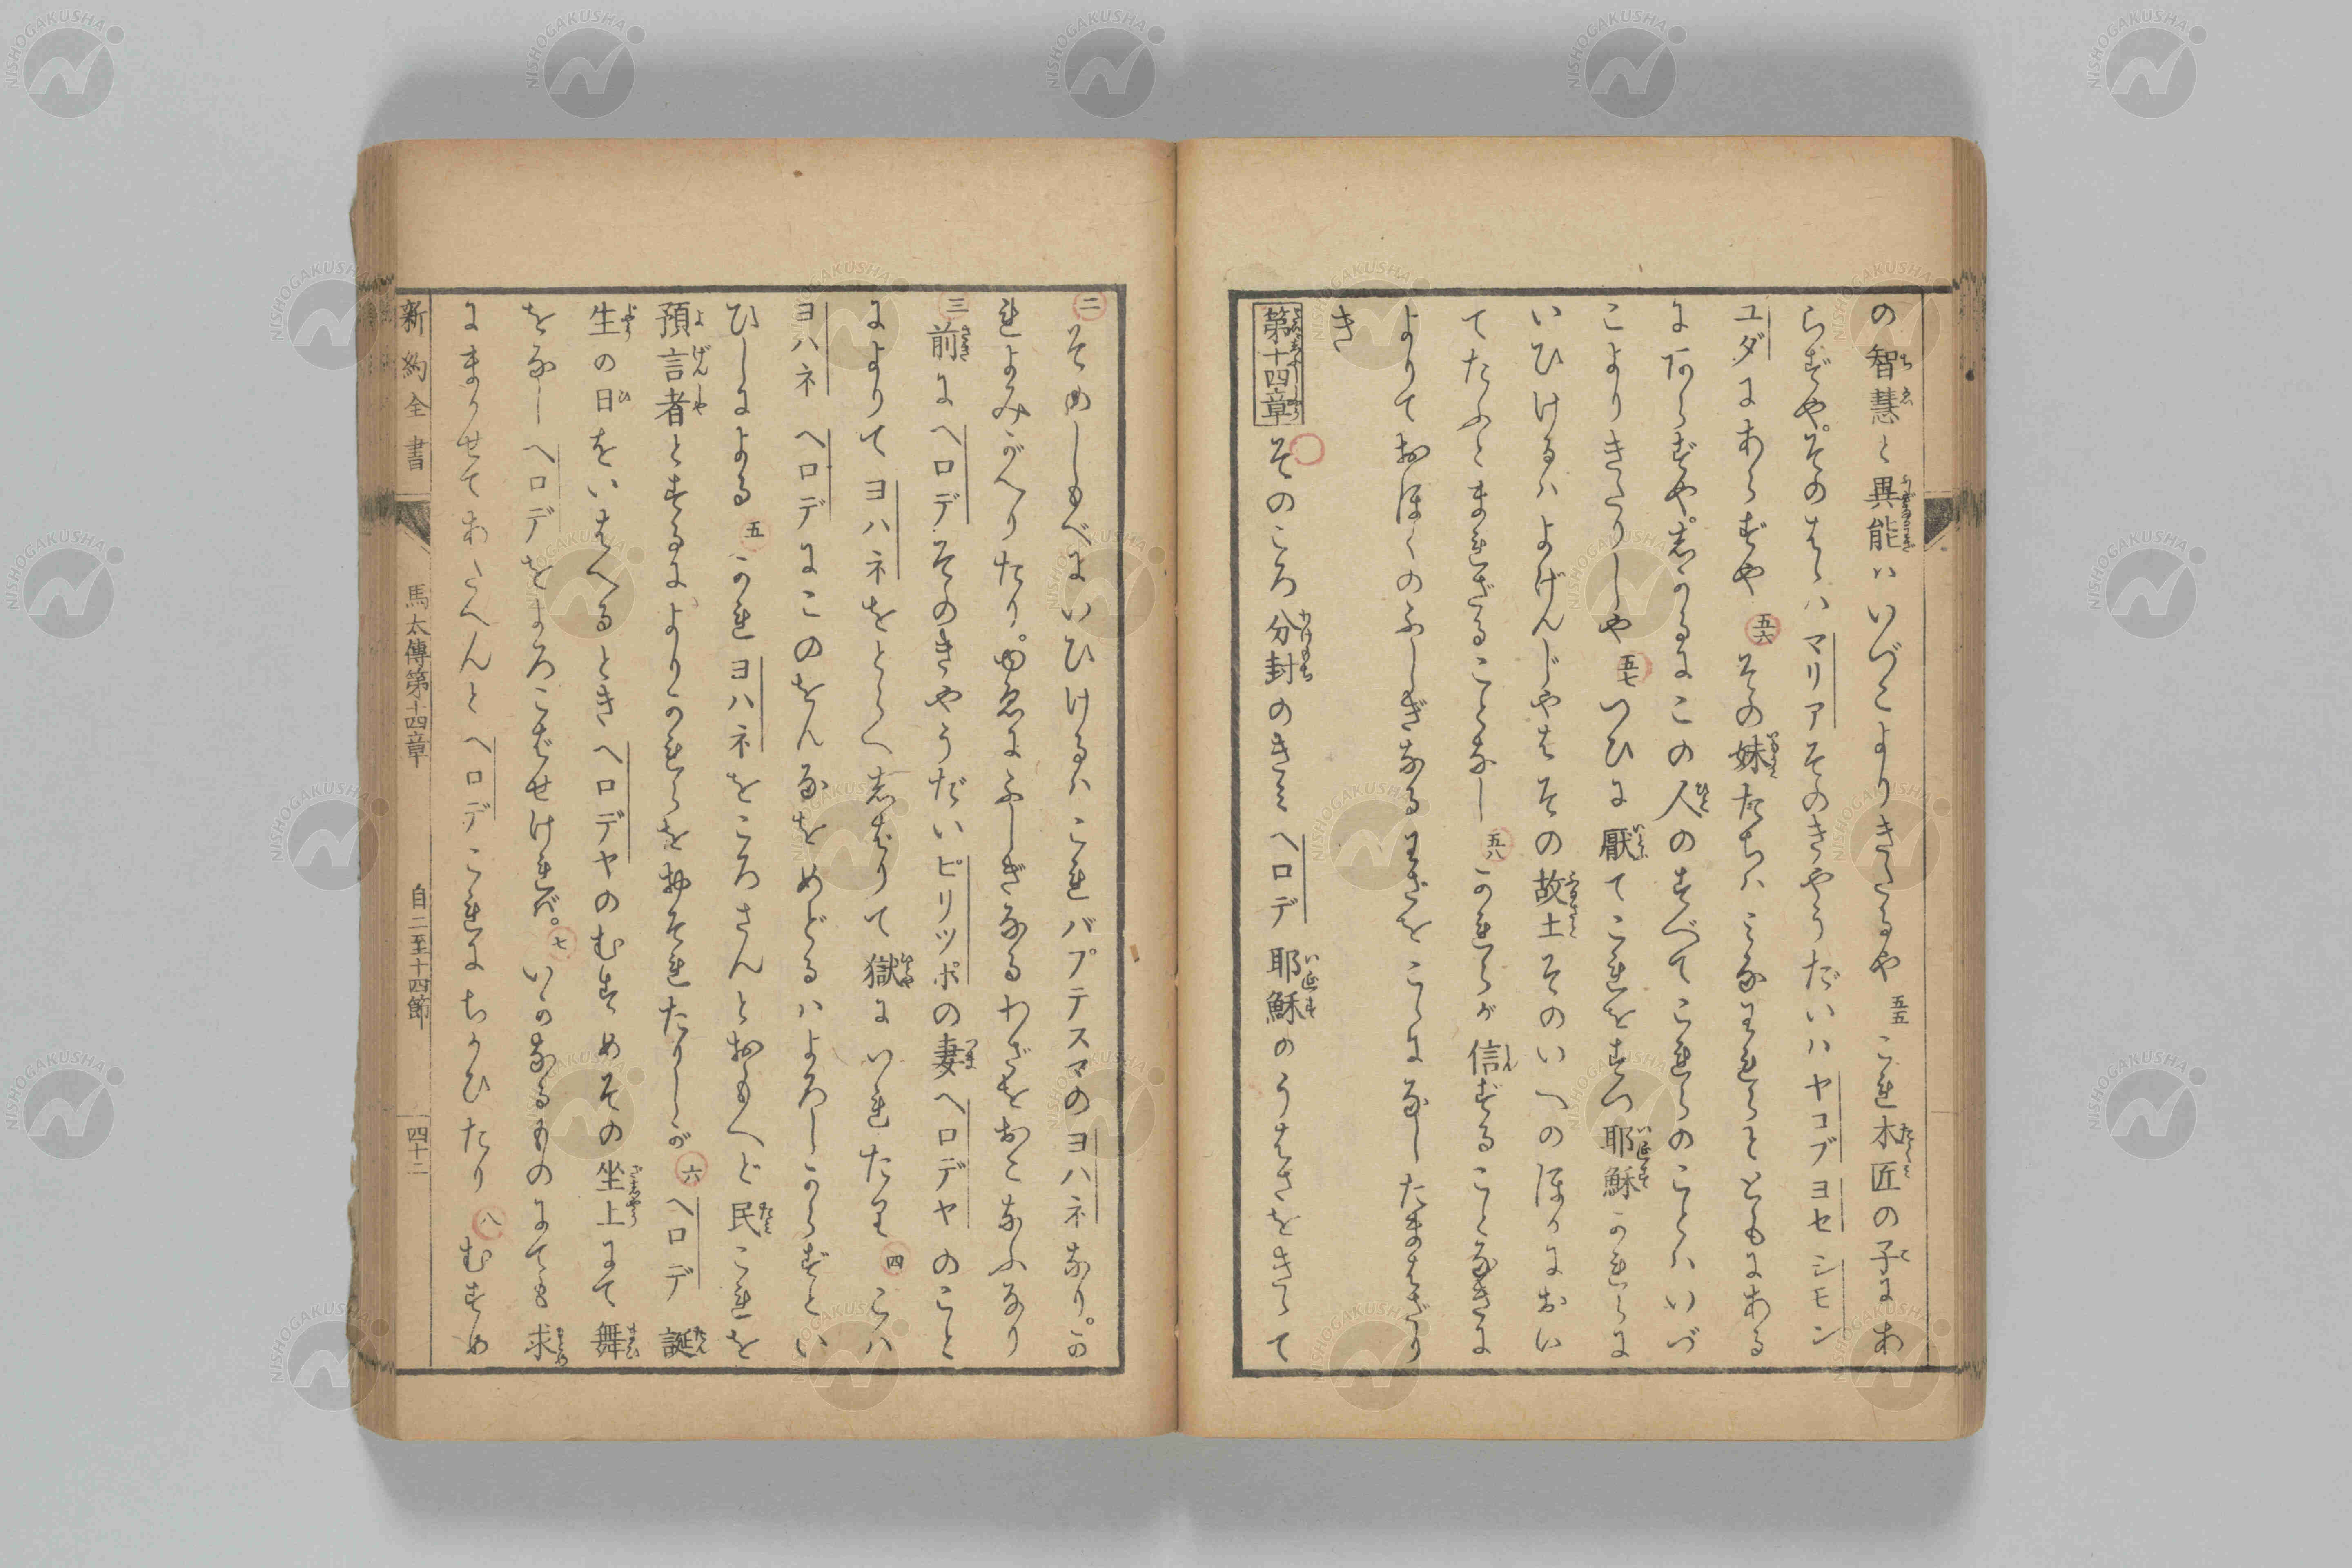 の智慧と異能ハいづこよりきたるや 五五 これ木匠の子にあ
らずや。そのはゝハマリアそのきやうだいハヤコブヨセシモン
ユダにあらずや 五六 その妹たちハみなわれらとともにある
にあらずや。志かるにこの人のすべてこれらのことハいづ
こよりきたりしや 五七 つひに厭てこれをすつ耶穌かれらに
いひけるハよげんじやはその故土そのいへのほかにおい
てたふとまれざることなし 五八 かれらが信ずることなきに
よりておほくのふしぎなるわざをこゝになしたまはざり
き
第十四章 そのころ分封のきみヘロデ耶穌のうはさをきゝて
二 そのしもべにいひけるハこれバプテスマのヨハネなり。か
れよみがへりたり。ゆゑにふしぎなるわざをおこなふなり
三 前にヘロデそのきやうだいピリツポの妻ヘロデヤのこと
によりてヨハネをとらへ志ばりて獄にいれたり 四 こハ
ヨハネヘロデにこのをんなをめどるハよろしからずとい
ひしによる 五 かれヨハネをころさんとおもへど民これを
預言者とするによりかれらをおそれたりしが 六 ヘロデ誕
生の日をいはへるときヘロデヤのむすめその坐上にて舞
をなしヘロデをよろこばせければ。七 いかなるものにても求
にまかせてあたへんとヘロデこれにちかひたり 八 むすめ
新約全書 馬太傳第十四章 自二至十四節 四十二